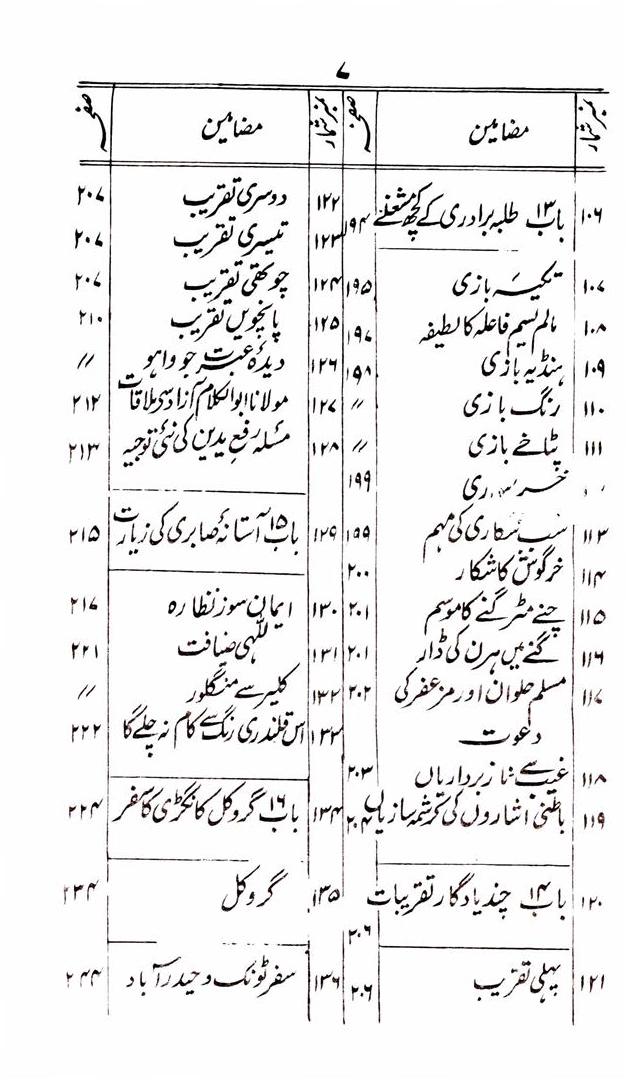 ۷
نمبر شمار مضامین صفحہ
۱۰۶ باب ۱۳ طلبہ برادری کے کچھ مشغلے ۱۹۴
۱۰۷ تکیہ بازی ۱۹۵
۱۰۸ عالم نسیم فاعلہ کا لطیفہ ۱۹۷
۱۰۹ ہنڈیہ بازی ۱۹۸
۱۱۰ رنگ بازی ״
۱۱۱ پٹاخے بازی ״
۱۹۹
۱۱۳ شب شکاری کی مہم ۱۹۹
۱۱۴ خرگوش کا شکار ۲۰۰
۱۱۵ چنے مٹر گنے کا موسم ۲۰۱
۱۱۶ گنے میں ہرن کی ڈار ۲۰۱
۱۱۷ مسلم حلوان اور مزعفر کی ۲۰۲
دعوت
۱۱۸ غیب سے ناز برداریاں ۲۰۳
۱۱۹ باطنی اشاروں کی کرشمہ سازیاں ۲۰۴
۱۲۰ باب ۱۴ چند یادگار تقریبات ۲۰۶
۱۲۱ پہلی تقریب ۲۰۶
نمبر شمار مضامین صفحہ
۱۲۲ دوسری تقریب ۲۰۷
۱۲۳ تیسری تقریب ۲۰۷
۱۲۴ چوتھی تقریب ۲۰۷
۱۲۵ پانچویں تقریب ۲۱۰
۱۲۶ دیدۂ عبرت جو وا ہو ״
۱۲۷ مولانا ابوالکلام آزاد سے ملاقات ۲۱۲
۱۲۸ مسئلہ رفع یدین کی نئی توجیہ ۲۱۳
۱۲۹ باب ۱۵ آستانۂ صابری کی زیارت ۲۱۵
۱۳۰ ایمان سوز نظارہ ۲۱۷
۱۳۱ للّٰہی ضیافت ۲۲۱
۱۳۲ کلیر سے منگلور ״
۱۳۳ اس قلندری رنگ سے کام نہ چلے گا ۲۲۲
۱۳۴ باب ۱۶ گروکل کانگڑی کا سفر ۲۲۴
۱۳۵ گروکل ۲۳۴
۱۳۶ سفر ٹونک و حیدرآباد ۲۴۴